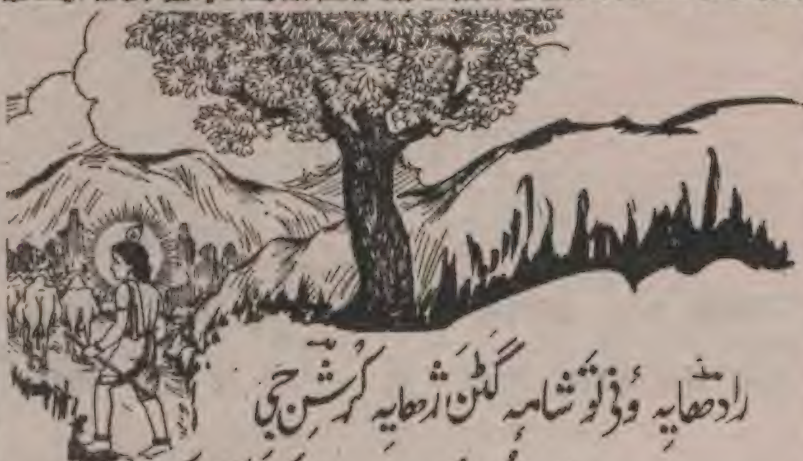 رادھایہ وُنی توٚ شامہ گٹن ژھایہ کرٛشن جی